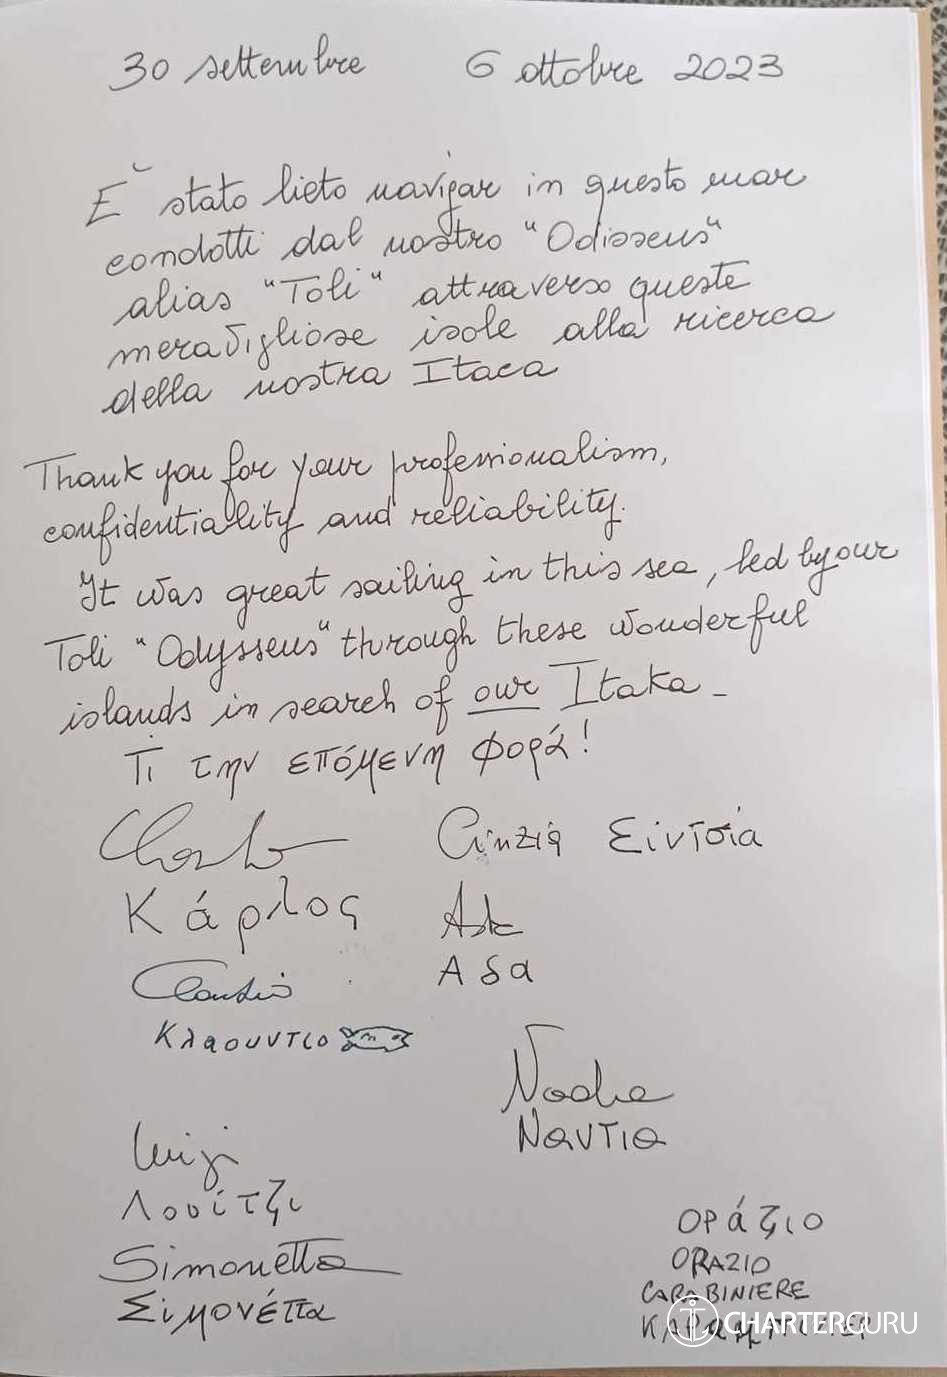 30 settembre 6 ottobre 2023
E' stato lieto navigar in questo mar
condotti dal nostro "Odisseus"
alias "Toli" attraverso queste
meravigliose isole alla ricerca
della nostra Itaca
Thank you for your professionalism,
confidentiality and reliability.
It was great sailing in this sea, led by our
Toli "Odysseus" through these wonderful
islands in search of our Itaka -
Τι την επόμενη φορά!
Carlo Cinzia Σιντσία
Κάρλος Ada
Claudio Αδα
Κλαουντιο
Nadia
Ναντια
Luigi
Λουίτζι
Simonetta
Σιμονέττα
ΟΡάζιο
ORAZIO
CARABINIERE
CHARTERGURU